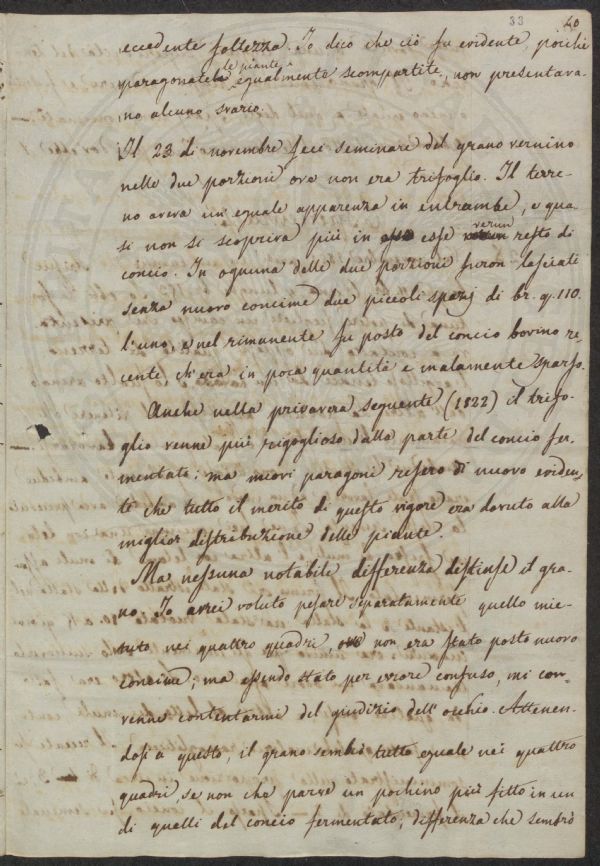 33 40
eccedente foltezza. Io dico che ciò fu evidente, poichè
paragonatele le piante egualmente scompartite, non presentava-
no alcuno svario.
Il 23 di novembre feci seminare del grano vernino
nelle due porzioni ove non era trifoglio. Il terre-
no aveva un'eguale apparenza in entrambe, e qua-
si non si scopriva più in esse verun resto di
concio. In ognuna delle due porzioni furon lasciati
senza nuovo concime due piccoli spazj di br. q. 110.
l'uno, e nel rimanente fu posto del concio bovino re-
cente, ch'era in poca quantità e malamente sparso.
Anche nella primavera seguente (1822) il trifo-
glio venne più rigoglioso dalla parte del concio fer-
mentato; ma nuovi paragoni resero di nuovo eviden-
te che tutto il merito di questo vigore era dovuto alla
miglior distribuzione delle piante.
Ma nessuna notabile differenza distinse il gra-
no. Io avrei voluto pesare separatamente quello mie-
tuto nei quattro quadri, ove non era stato posto nuovo
concime; ma essendo stato per errore confuso, mi con-
venne contentarmi del giudizio dell'occhio. Attenen-
dosi a questo, il grano sembrò tutto eguale nei quattro
quadri, se non che parve un pochino più fitto in un
di quelli del concio fermentato; differenza che sembrò